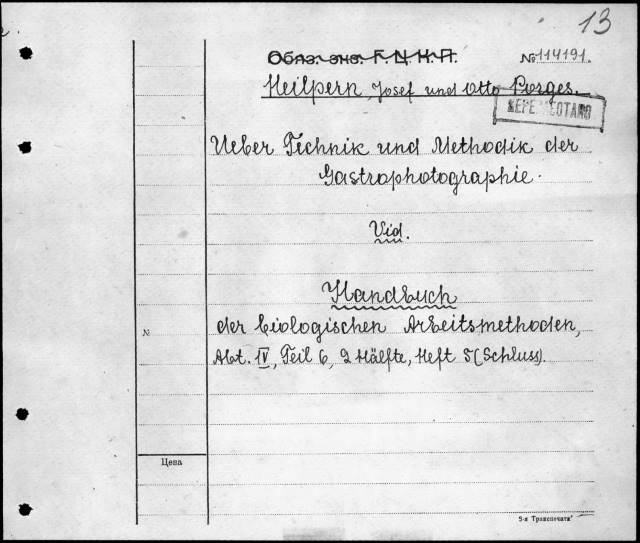 13
Обяз. экз. Г.Ц.К.П. № 114191.
Heilpern, Josef und Otto Porges.
Ueber Technik und Methodik der
Gastrophotographie.
Vid.
Handbuch
№ der biologischen Arbeitsmethoden,
Abt. IV, Teil 6, 2 Hälfte, Heft 5 (Schluss).
Цена
5-я Транспечати